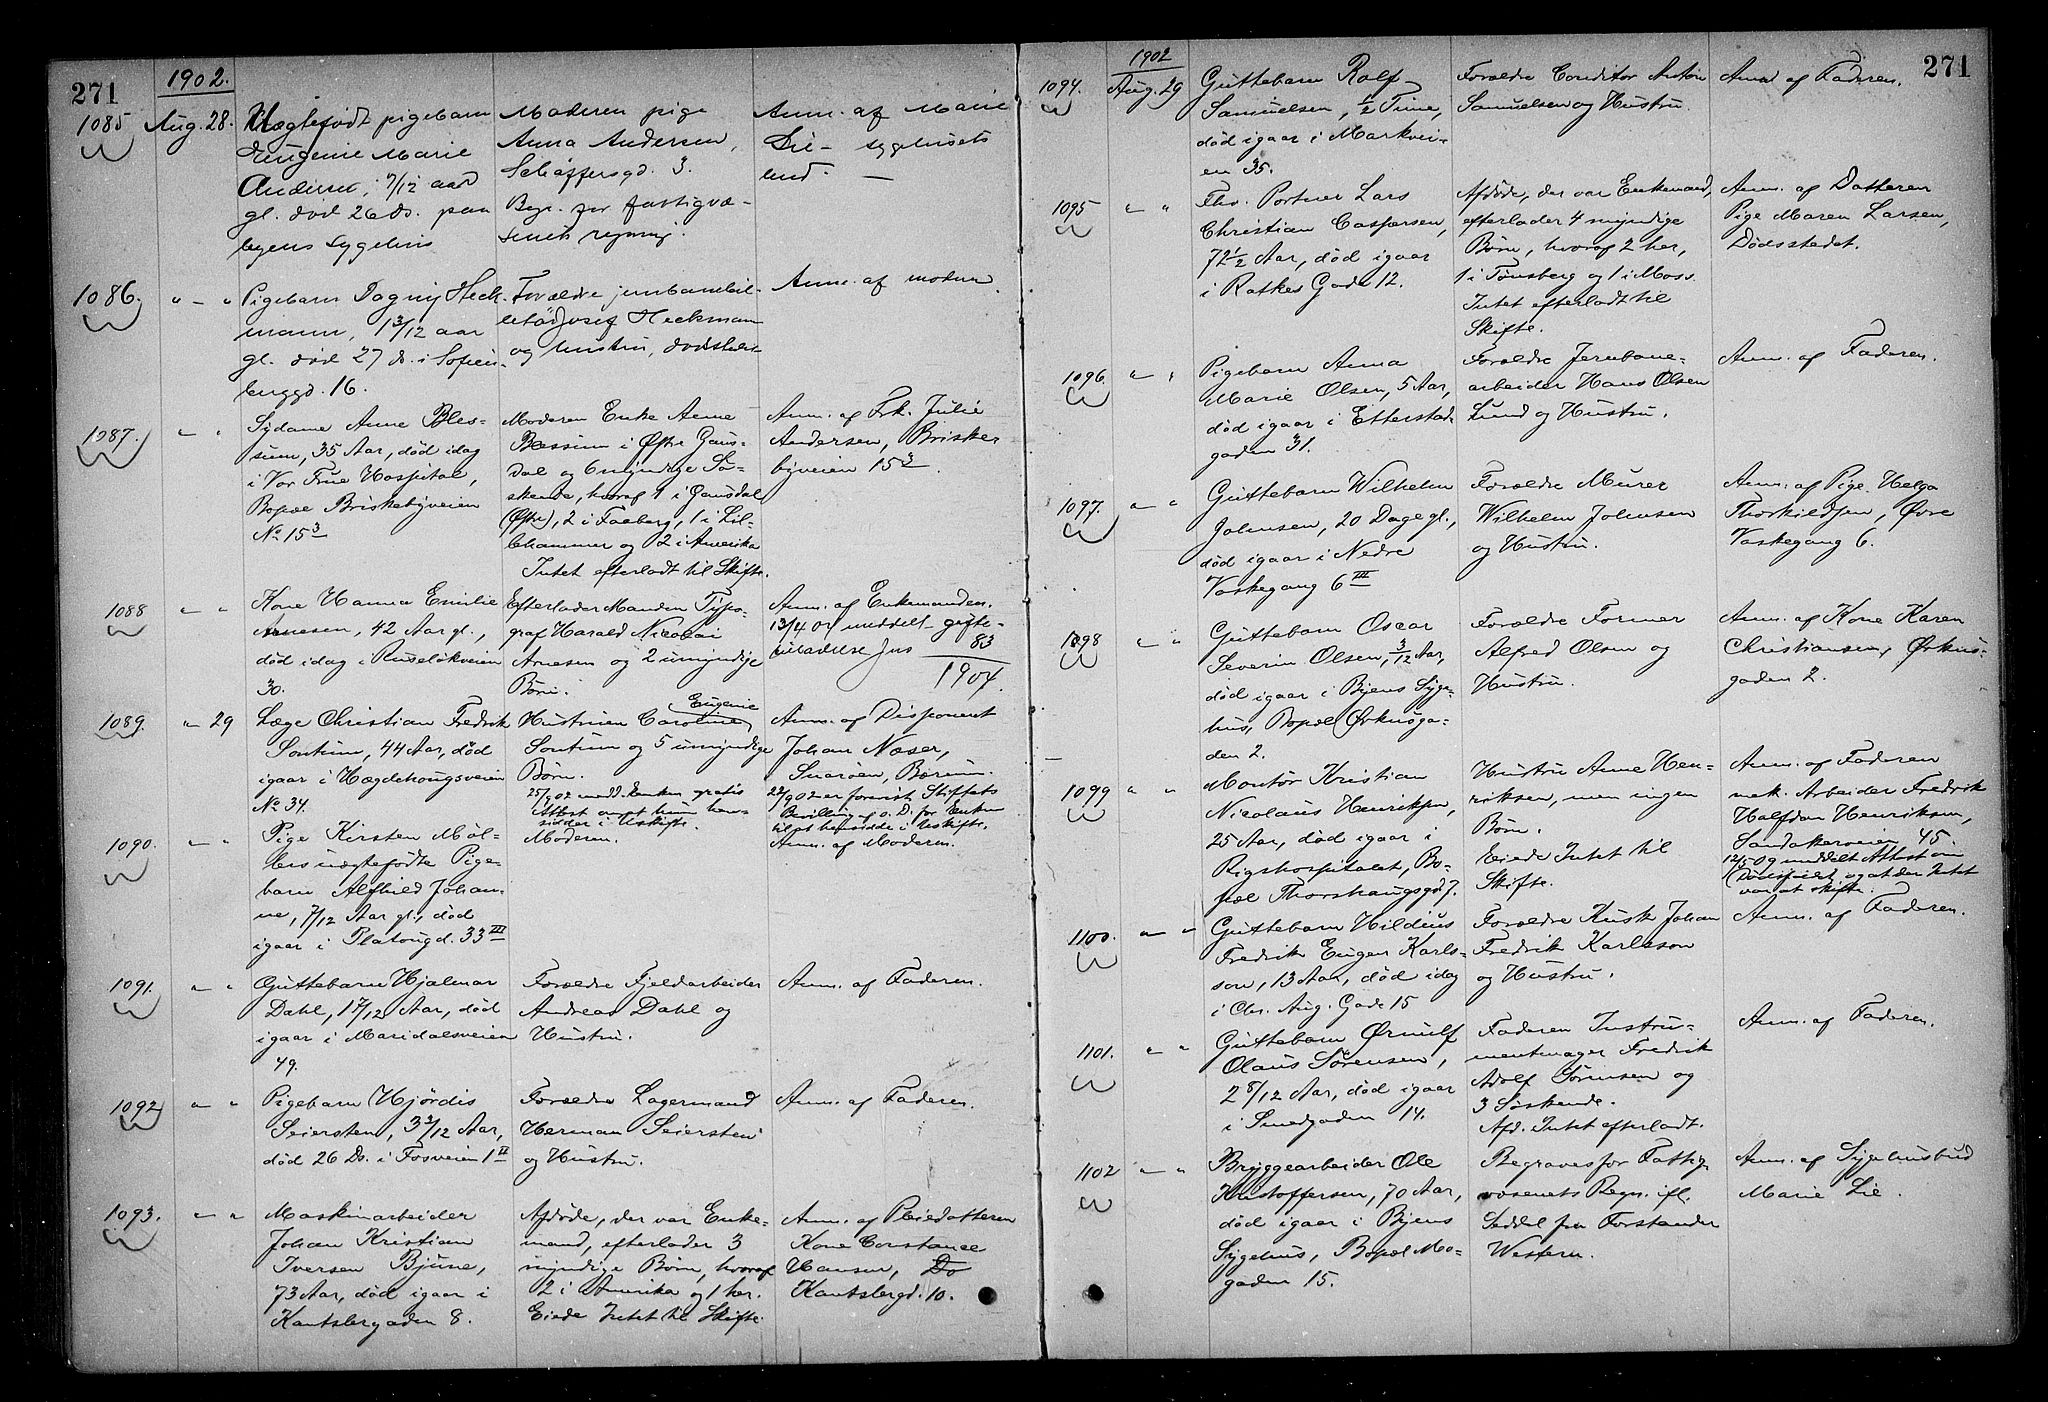 271
1902.
1085
Aug. 28.
Uægtefødt pigebarn
Eugenie Marie
Andersen, 7/12 aar
gl. død 26 ds. paa
byens Sygehus
Moderen pige
Anna Andersen,
Schäffersgd. 3.
Begr. for fattigvæ-
senets regning.
Anm. af Marie
Lie - sygehusets
bud. -
1086.
" - "
Pigebarn Dagny Heck-
mann, 1 3/12 aar
gl. død 27 ds. i Sofien-
berggd. 16.
Forældre jernbanebil-
letør Josef Heckmann
og hustru, dødsstedet
Anm. af moderen.
1087.
" "
Sydame Anne Bles-
sum, 35 Aar, død idag
i Vor Frue Hospital,
Bopæl Briskebyveien
No 15 3
Moderen Enke Anne
Blessum i Østre Gaus-
dal og 6 myndige Sø-
skende, hvoraf 1 i Gausdal
(Østre), 2 i Faaberg, 1 i Lil-
lehammer og 2 i Amerika
Intet efterladt til Skifte.
Anm. af Frk. Julie
Andersen, Briske-
byveien 15 3.
1088
" "
Kone Hanna Emilie
Arnesen, 42 Aar gl.,
død idag i Ruseløkveien
30.
Efterlader Manden Typo-
graf Harald Nicolai
Arnesen og 2 umyndige
Børn.
Anm. af Enkemanden.
13/4 04 meddelt gifte-
tilladelse Jns 83
1904.
1089.
" 29
Læge Christian Fredrik
Sontum, 44 Aar, død
igaar i Hægdehaugsveien
No 34.
Eugenie
Hustruen Caroline
Sontum og 5 umyndige
Børn.
25/9 02 medd. Enken gratis
Attest om at hun hen-
sidder i Uskifte.
Anm. af Disponent
Johan Næser,
Snarøen, Bærum.
22/9 02 er forevist Stiftets
Bevilling af s. D. for Enken
til at hensidde i Uskifte.
1090.
" "
Pige Kirsten Møl-
lers uægtefødte Pige-
barn Alfhild Johan-
ne, 7/12 Aar gl., død
igaar i Platougd. 33 III
Moderen.
Anm. af Moderen.
1091.
" "
Guttebarn Hjalmar
Dahl, 1 7/12 Aar, død
igaar i Maridalsveien
49.
Forældre Fjeldarbeider
Andreas Dahl og
Hustru.
Anm. af Faderen.
1092
" "
Pigebarn Hjørdis
Seiersten, 3 3/12 Aar,
død 26 Ds. i Fosveien 1 II
Forældre Lagermand
Herman Seiersten
og Hustru.
Anm. af Faderen.
1093.
" "
Maskinarbeider
Johan Kristian
Iversen Bjune,
73 Aar, død igaar i
Kantsbergaden 8.
Afdøde, der var Enke-
mand, efterlader 3
myndige Børn, hvoraf
2 i Amerika og 1 her.
Eiede Intet til Skifte.
Anm. af Pleiedatteren
Kone Constance
Hansen, Do
Kantsbergd. 10.
271
1902
1094.
Aug. 29
Guttebarn Rolf
Samuelsen, 1/2 Time,
død igaar i Markvei-
en 35.
Forældre Conditor Anton
Samuelsen og Hustru.
Anm. af Faderen.
1095
" "
Fhv. Portner Lars
Christian Caspersen,
72 1/2 Aar, død igaar
i Ratkes Gade 12.
Afdøde, der var Enkemand,
efterlader 4 myndige
Børn, hvoraf 2 her,
1 i Tønsberg og 1 i Moss.
Intet efterladt til
Skifte.
Anm. af Datteren
Pige Maren Larsen,
Dødsstedet.
1096.
" "
Pigebarn Anna
Marie Olsen, 5 Aar,
død igaar i Etterstad-
gaden 31.
Forældre Jernbane-
arbeider Hans Olsen
Lund og Hustru.
Anm. af Faderen.
1097.
" "
Guttebarn Wilhelm
Johnsen, 20 Dage gl.,
død igaar i Nedre
Vaskegang 6 III
Forældre Murer
Wilhelm Johnsen
og Hustru.
Anm. af Pige Helga
Thorkildsen, Øvre
Vaskegang 6.
1098
" "
Guttebarn Oscar
Severin Olsen, 3/12 Aar,
død igaar i Byens Syge-
hus, Bopæl Ørknøga-
den 2.
Forældre Former
Alfred Olsen og
Hustru.
Anm. af Kone Karen
Christiansen, Ørknø-
gaden 2.
1099
" "
Montør Kristian
Nicolaus Henriksen,
25 Aar, død igaar i
Rigshospitalet, Bo-
pæl Thorshaugsgd 7.
Hustru Anne Hen-
riksen, men ingen
Børn.
Eiede Intet til
Skifte.
Anm. af Faderen
mek. Arbeider Fredrik
Halfdan Henriksen,
Sandakerveien 45.
12/5 09 meddelt Attest om
Dødsfaldet og at der Intet
var at skifte.
1100.
" "
Guttebarn Hildius
Fredrik Eugen Karls-
son, 13 Aar, død idag
i Chr. Aug. Gade 15
Forældre Kusk Johan
Fredrik Karlsson
og Hustru.
Anm. af Faderen.
1101.
" "
Guttebarn Ørnulf
Olaus Sørensen,
2 8/12 Aar, død igaar
i Smedgaden 14.
Faderen Instru-
mentmager Fredrik
Adolf Sørensen og
3 Søskende.
Afd. Intet efterladt.
Anm. af Faderen.
1102
" "
Bryggearbeider Ole
Kristoffersen, 70 Aar,
død igaar i Byens
Sygehus, Bopæl Mo-
gaden 15.
Begraves for Fattig-
væsenets Regn. ifl.
Seddel fra Forstander
Western.
Anm. af Sygehusbud
Marie Lie.